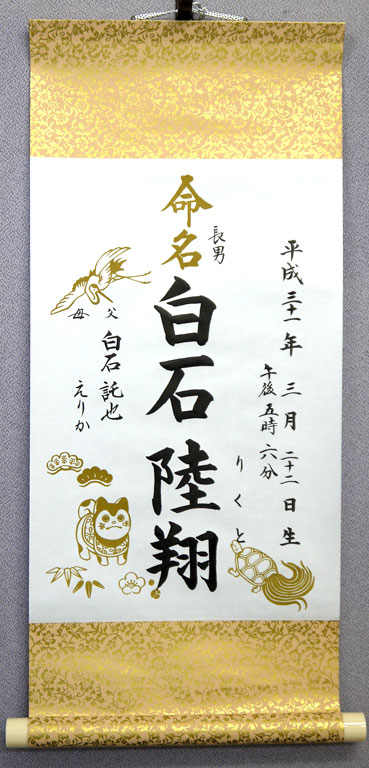 平成三十一年 三月二十二日生
午後五時六分
命名
長男
白石 陸翔
りくと
父 白石 託也
母 えりか